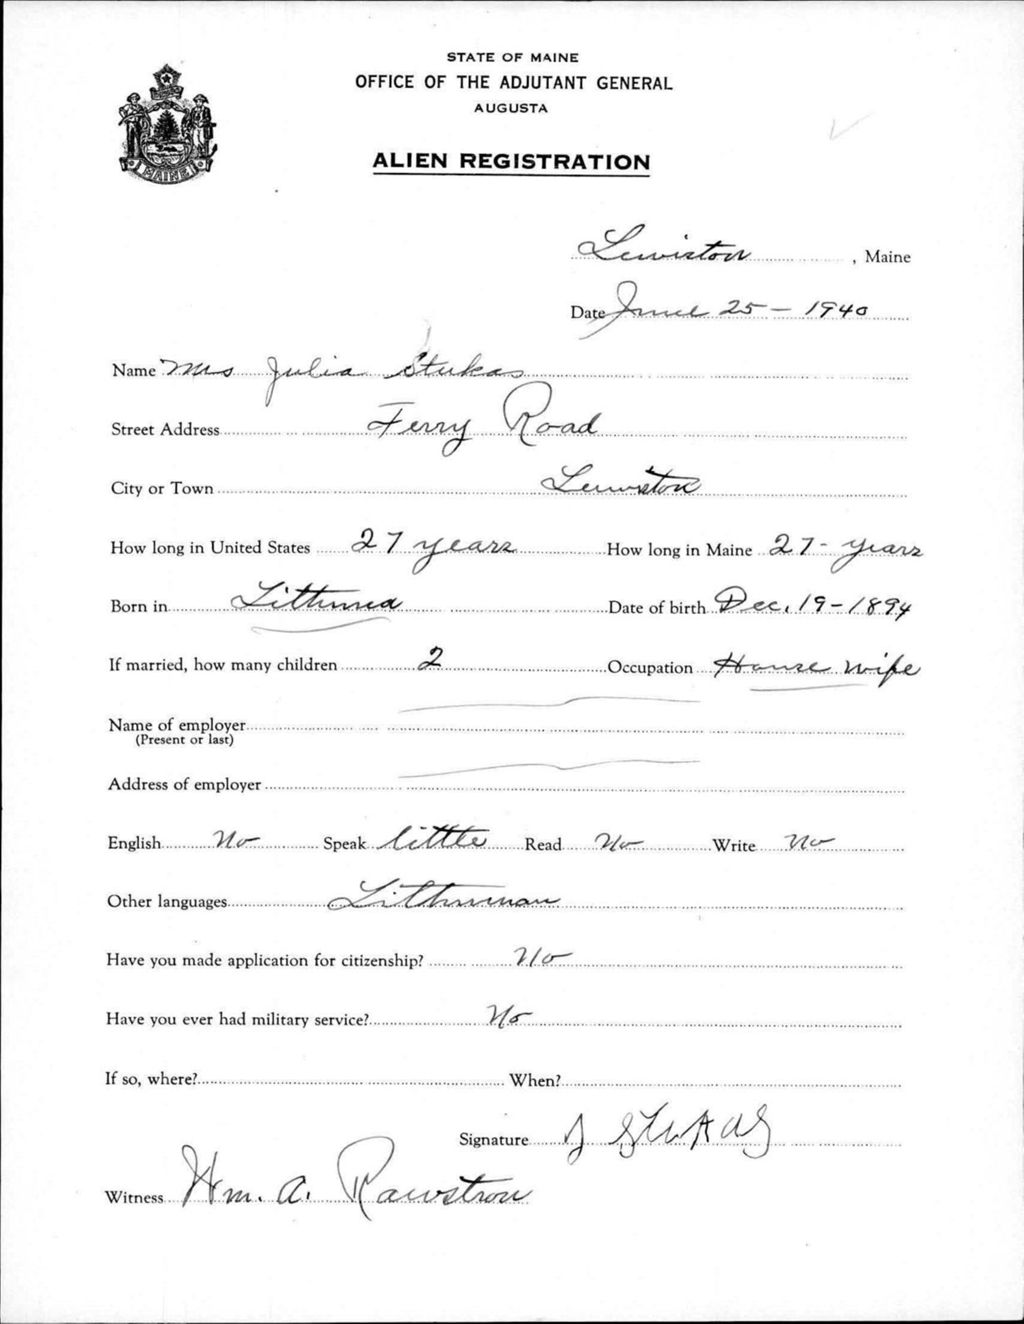 STATE OF MAINE
OFFICE OF THE ADJUTANT GENERAL
AUGUSTA
ALIEN REGISTRATION
MAINE
Lewiston, Maine
Date June 25 - 1940
Name Mrs Julia Stukas
Street Address Ferry Road
City or Town Lewiston
How long in United States 27 years How long in Maine 27 - years
Born in Date of birth Dec. 19 - 1894
If married, how many children 2 Occupation House wife
Name of employer
(Present or last)
Address of employer
English No Speak little Read No Write No
Other languages
Have you made application for citizenship? No
Have you ever had military service? No
If so, where? When?
Signature J Stukas
Witness Wm. A. Rawstron